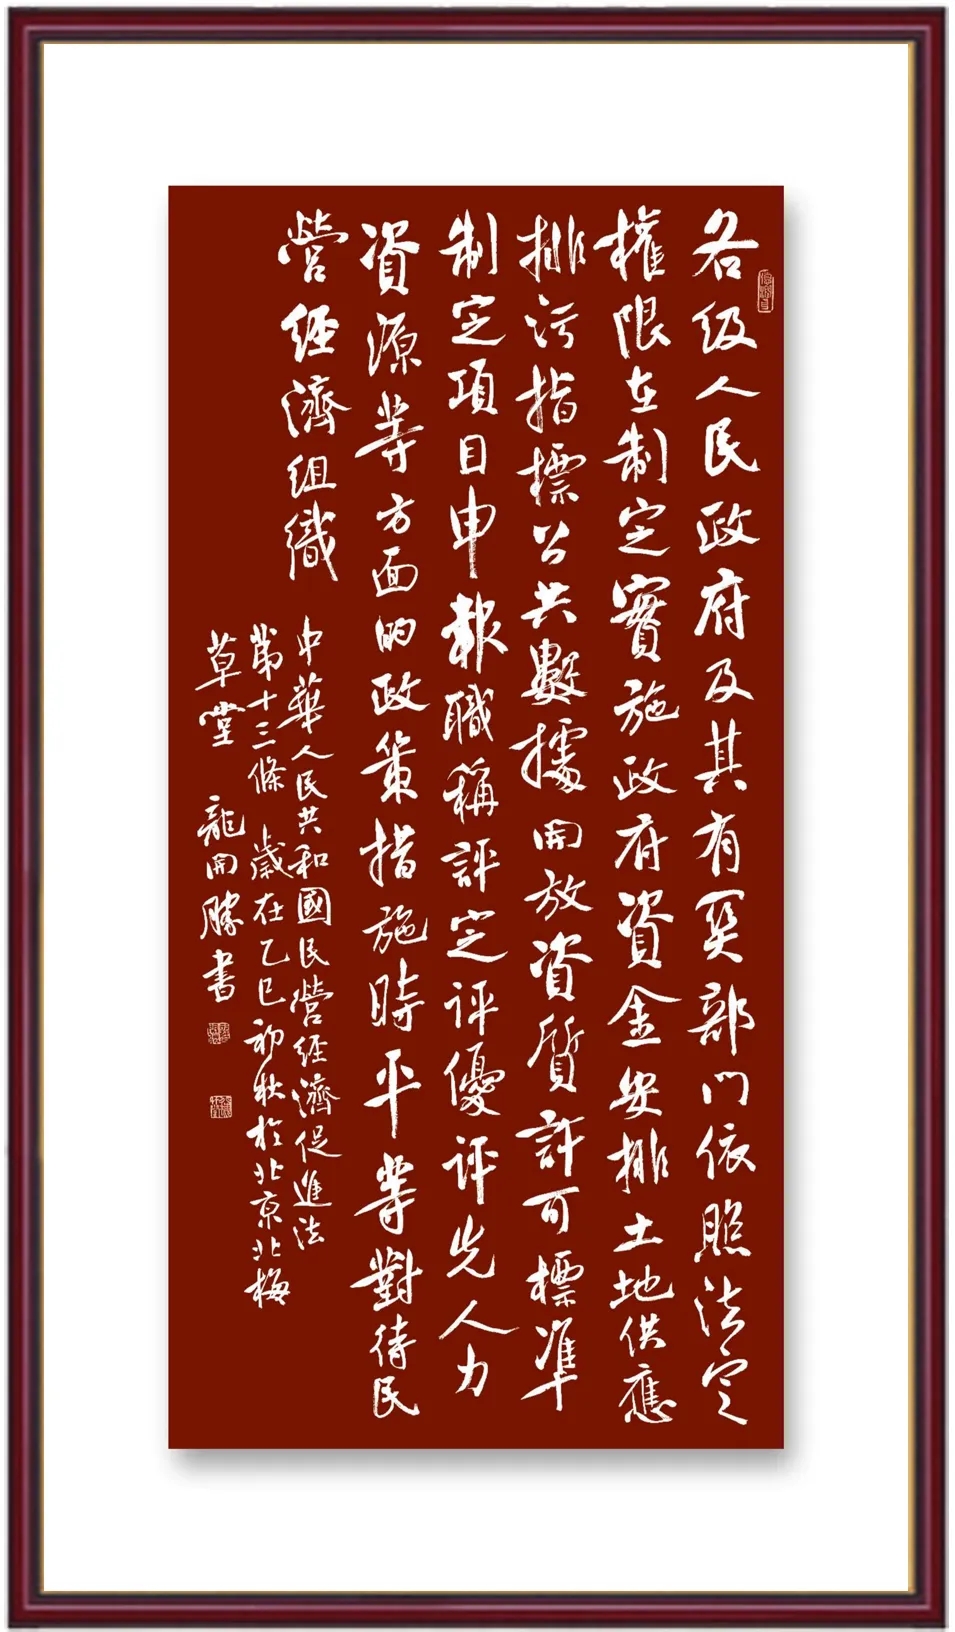 各级人民政府及其有関部門依照法定
權限在制定實施政府資金安排土地供應
排污指標公共數據開放資質許可標準
制定項目申報職稱評定评優评先人力
資源等方面的政策措施時平等對待民
營经濟组織
中華人民共和國民營经濟促進法
第十三條 歲在乙巳初秋於北京北梅
草堂 龍開勝書